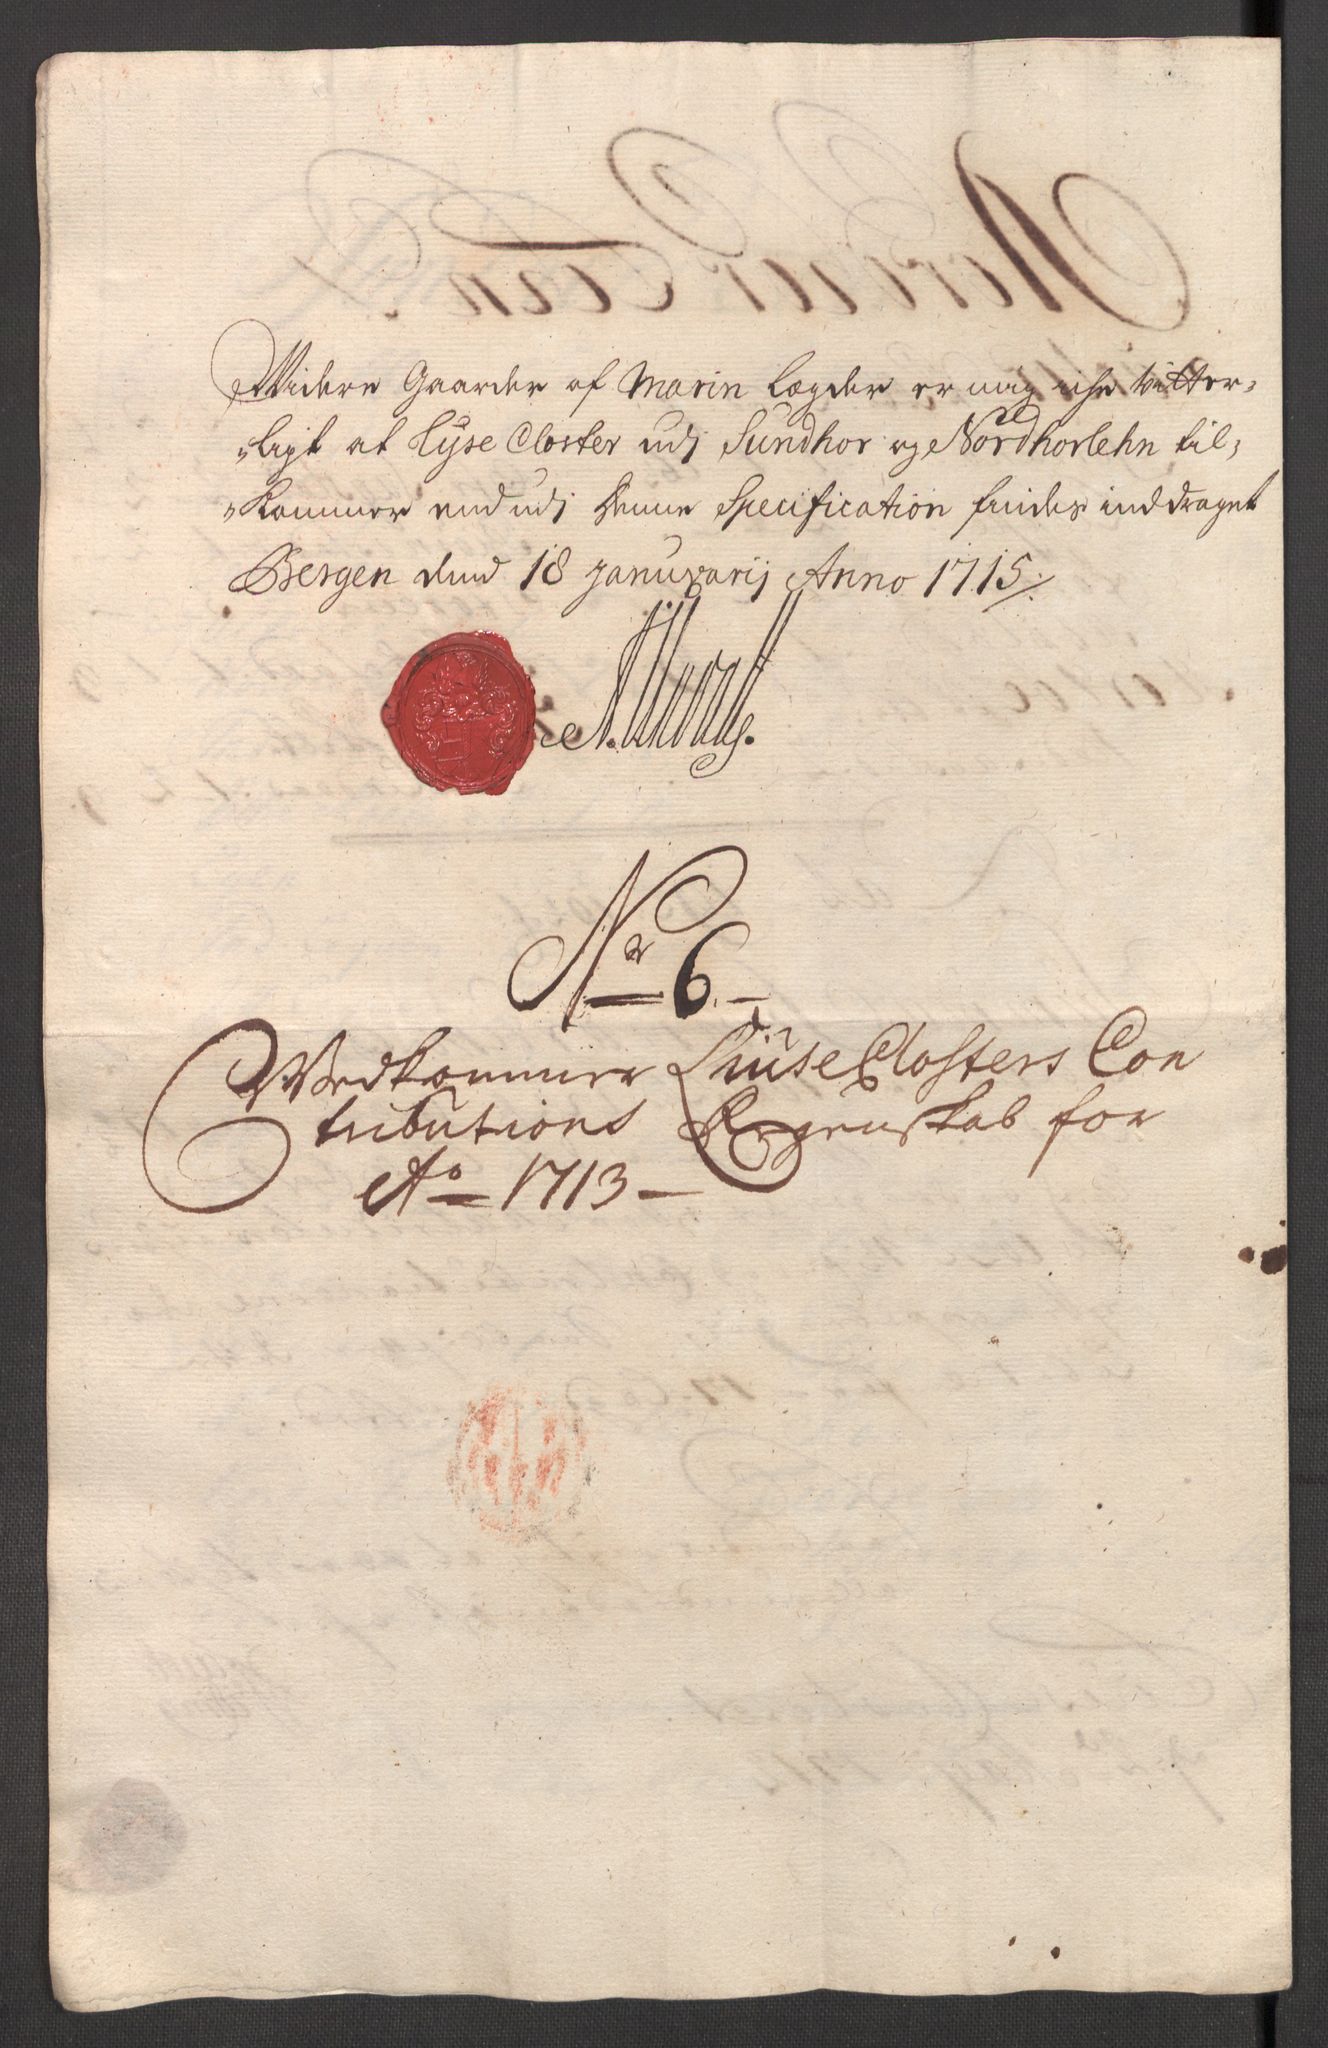 Widere Gaarder af Marin Legder er mig iche vitter-
ligt at Lyse Closter udj Sundhor og Nordhorlehn til-
kommer end udj denne Specification findes inddraget
Bergen dend 18 januarij Anno 1715
Nr 6.
Vedkommer Liuse Closters Con
tributions Regenskab for
Ao 1713